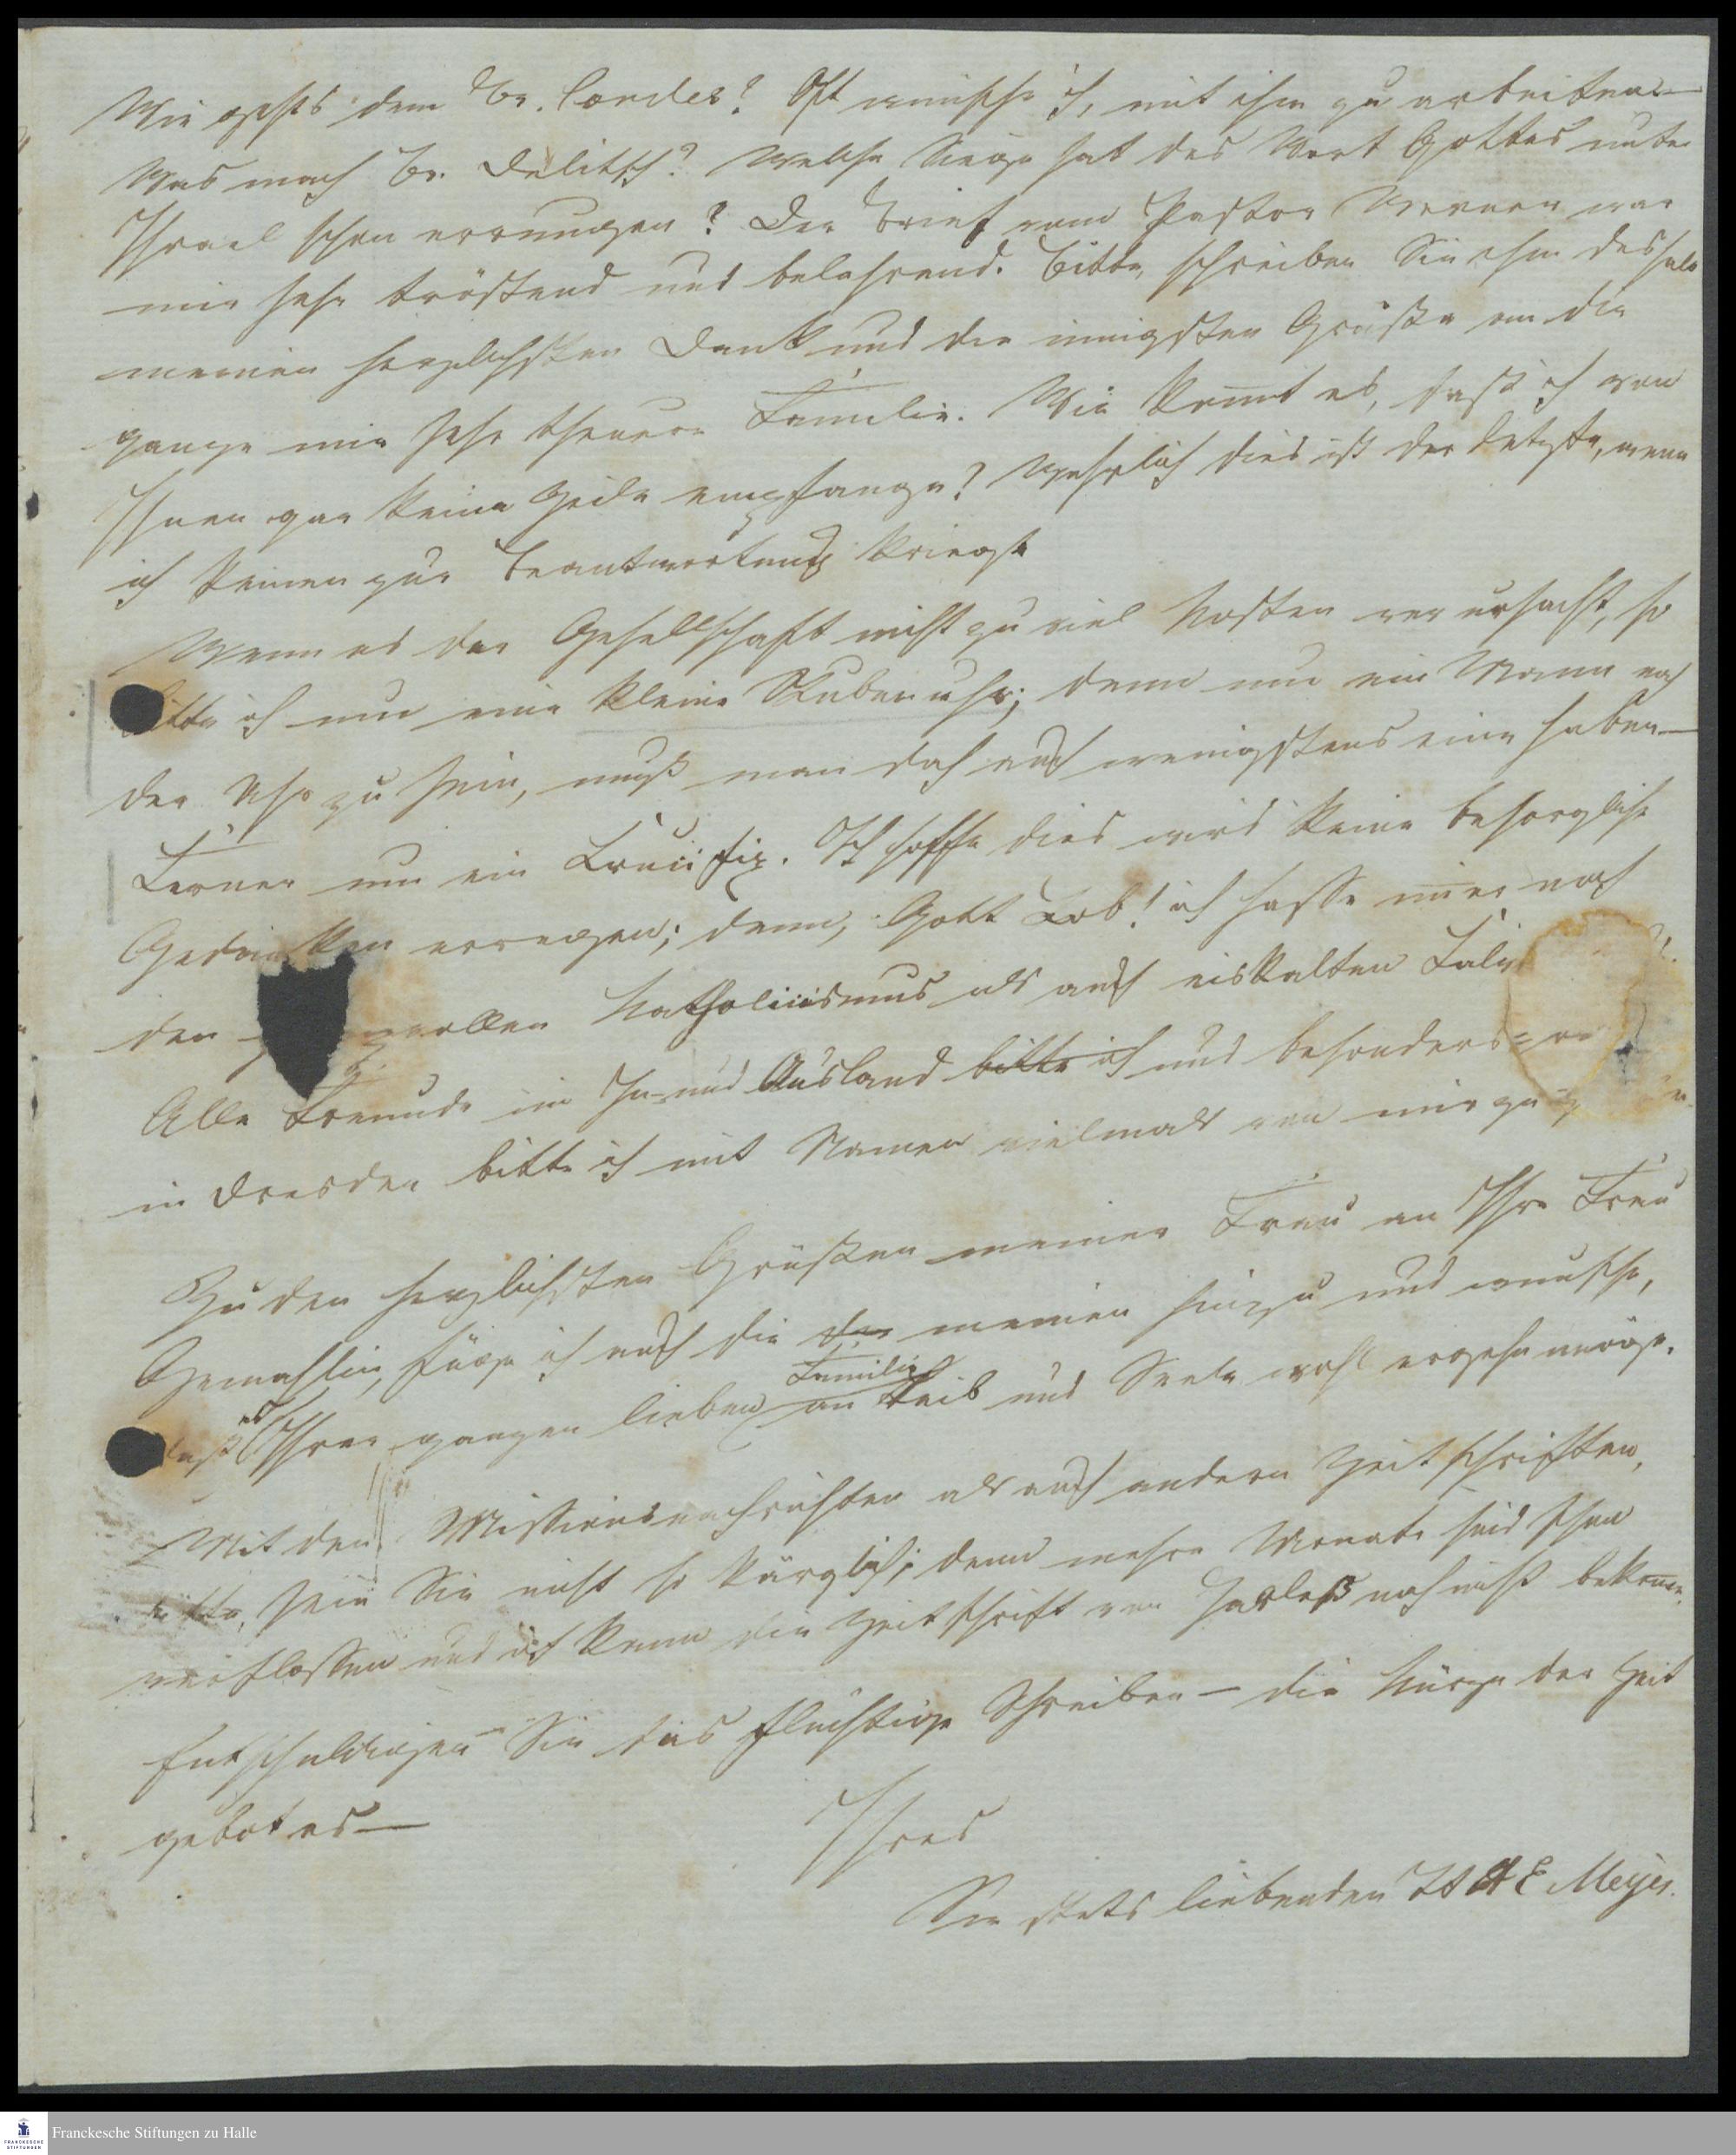 Wie gehts dem Br. Cordes? Oft wünsche ich, mit ihm zu arbeiten—
Was mach Br. Delitsch? Welche Siege hat das Wort Gottes unter
Israel schon errungen? Der Brief vom Pastor Werner war
mir sehr tröstend und belehrend. Bitte, schreiben Sie ihm deshalb
meinen herzlichsten Dank und die innigsten Grüße an die
ganze mir sehr theuere Familie. Wie kommt es, daß ich von
Ihnen gar keine Zeile empfange? Wahrlich dies ist der letzte, wenn
ich keinen zur Beantwortung kriege
Wenn es der Gesellschaft nicht zu viel Kosten verursacht, so
bitte ich um eine kleine Stubenuhr; denn um ein Mann nach
der Uhr zu sein, muß man doch auch wenigstens eine haben—
Ferner um ein Crucifix. Ich hoffe dies wird keine besorgliche
Gedanken erregen; denn, Gott Lob! ich hasse immer noch
den vollen Katholicismus als auch eiskalten Calv
Alle Freunde im In- und Ausland bitte ich und besonders
in Dresden bitte ich mit Namen vielmals von mir zu
Zu den herzlichsten Grüßen meiner Frau an Ihre Frau
Gemahlin, füge ich auch die der meinen hinzu und wünsche,
daß es Ihrer ganzen lieben Familie an Leib und Seele wohl ergehn möge.
Mit den Missionsnachrichten als auch andern Zeitschriften,
bitte, sein Sie nicht so kärglich; denn mehre Monate sind schon
verflossen und ich kann die Zeitschrift von Harleß noch nicht bekommen.
Entschuldigen Sie das flüchtige Schreiben— die Kürze der Zeit
gebot es—
Ihres
Sie stets liebenden H A E Meyer.
Franckesche Stiftungen zu Halle
FRANCKESCHE
STIFTUNGEN